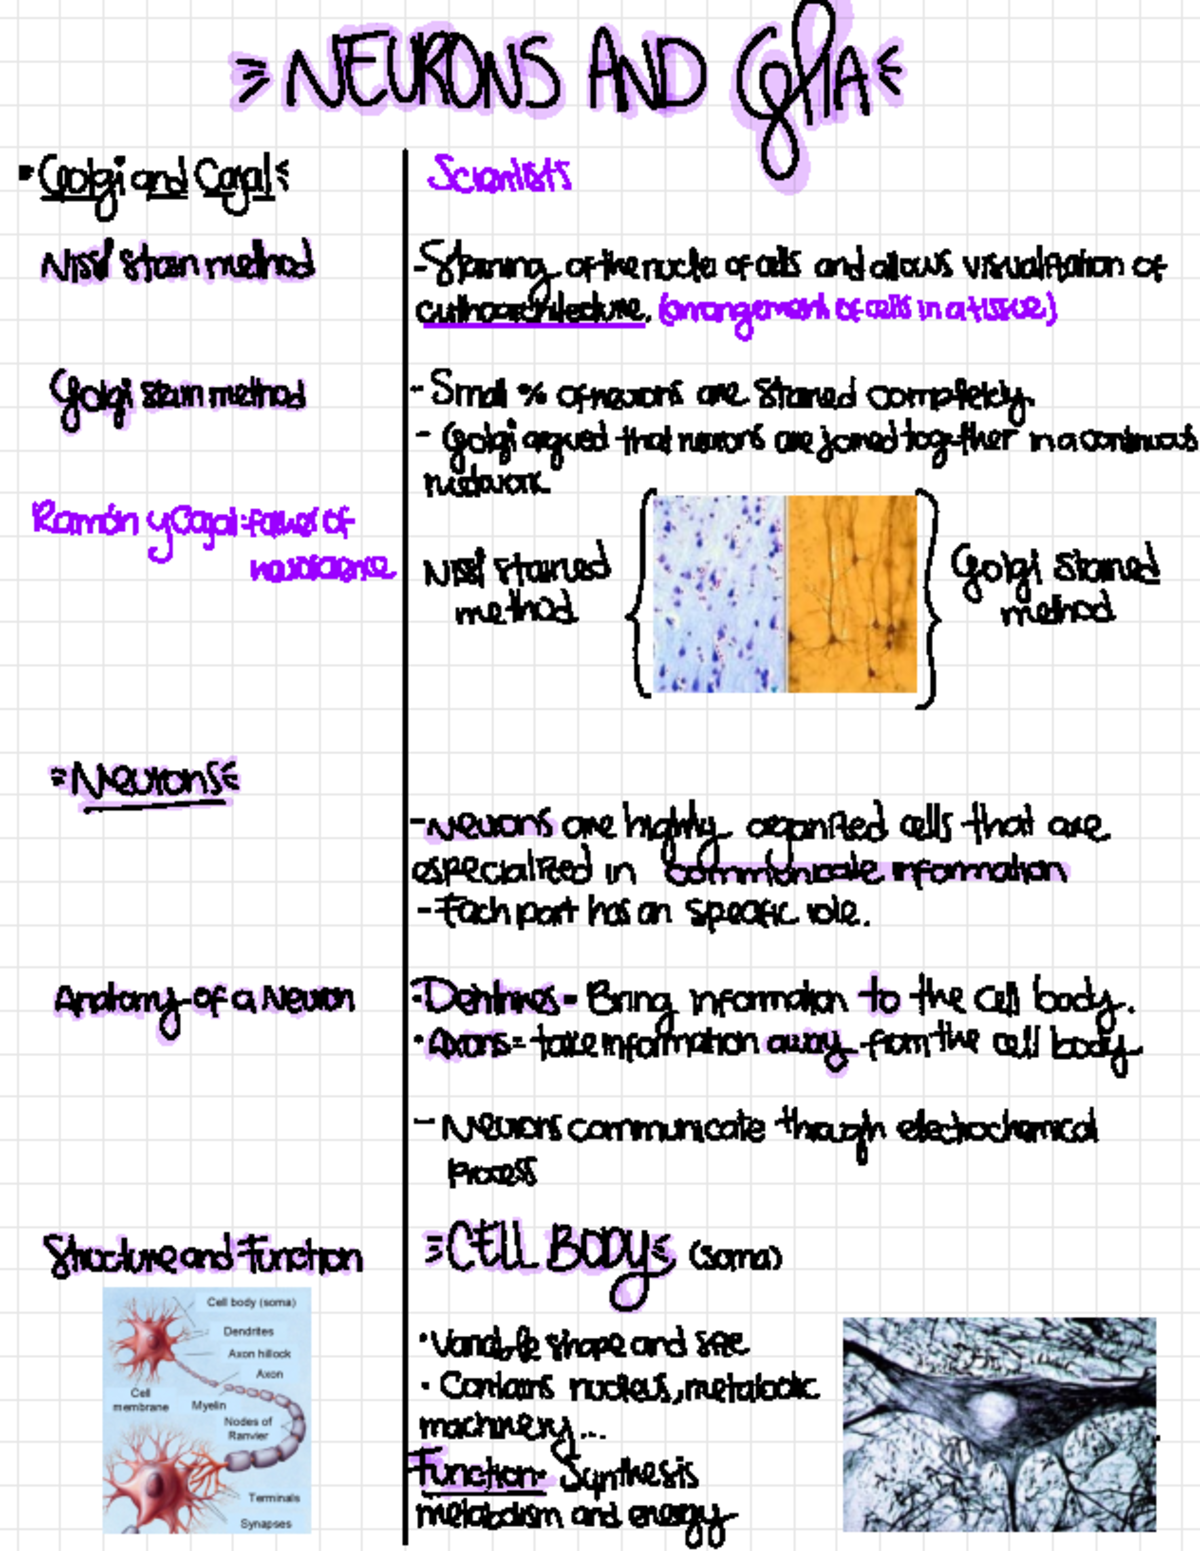 NEURONS AND GLIA
Golgi and Cajal
Scientists
Nissl stain method
-Staining of the nuclei of cells and allows visualization of
cuthoarchitecture. (arrangement of cells in a tissue)
Golgi stain method
- Small % of neurons are stained completely.
- Golgi argued that neurons are joined together in a continuous
network.
Ramón y Cajal: father of
neuroscience
Nissl stained
method
Golgi stained
method
Neurons
-Neurons are highly organized cells that are
especialized in communicate information
-Each part has an specific role.
Anatomy of a Neuron
•Dentrines = Bring information to the cell body.
•Axons = take information away from the cell body
- Neurons communicate through electrochemical
process
Structure and Function
CELL BODY (soma)
Cell body (soma)
Dendrites
Axon hillock
Axon
Cell
membrane
Myelin
Nodes of
Ranvier
Terminals
Synapses
•Variable shape and size
• Contains nucleus, metabolic
machinery...
Function: Synthesis
metabolism and energy